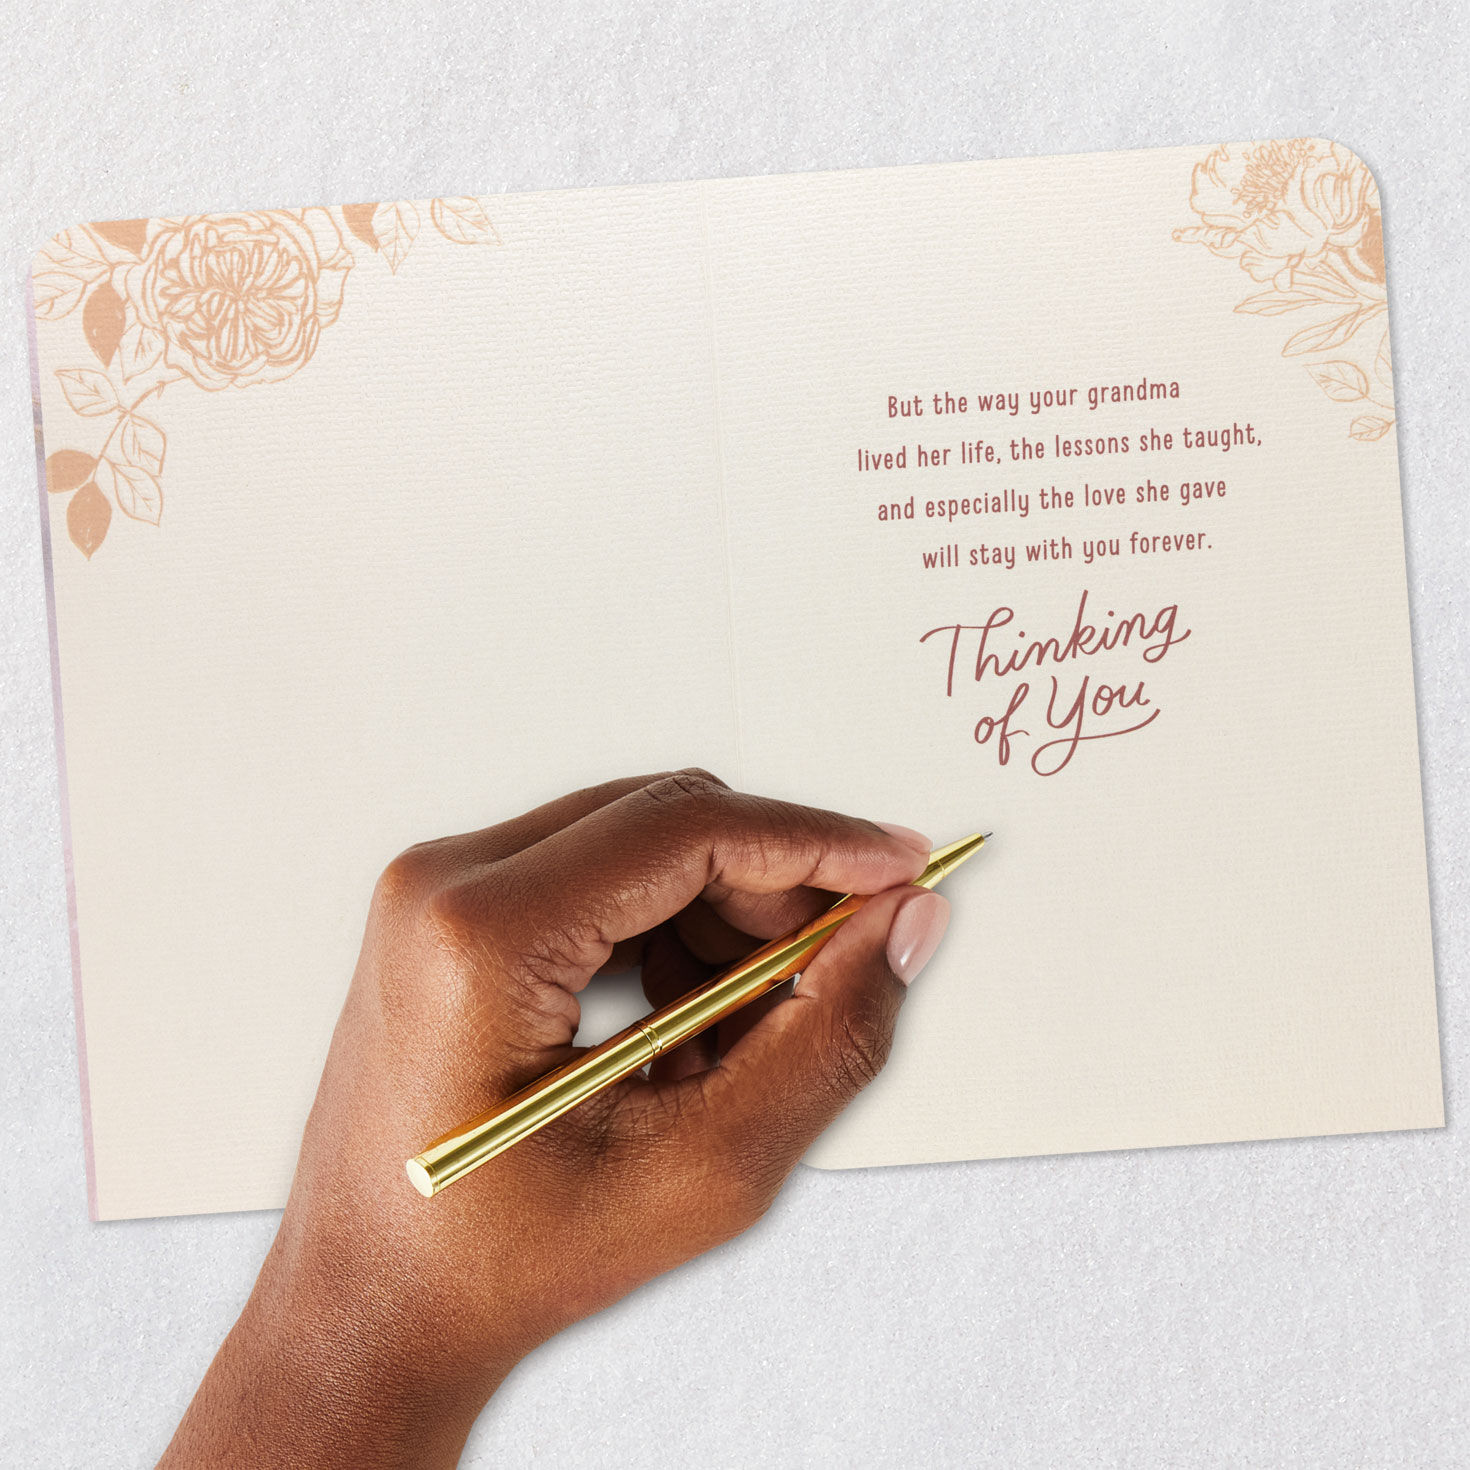 But the way your grandma
lived her life, the lessons she taught,
and especially the love she gave
will stay with you forever.
Thinking
of You